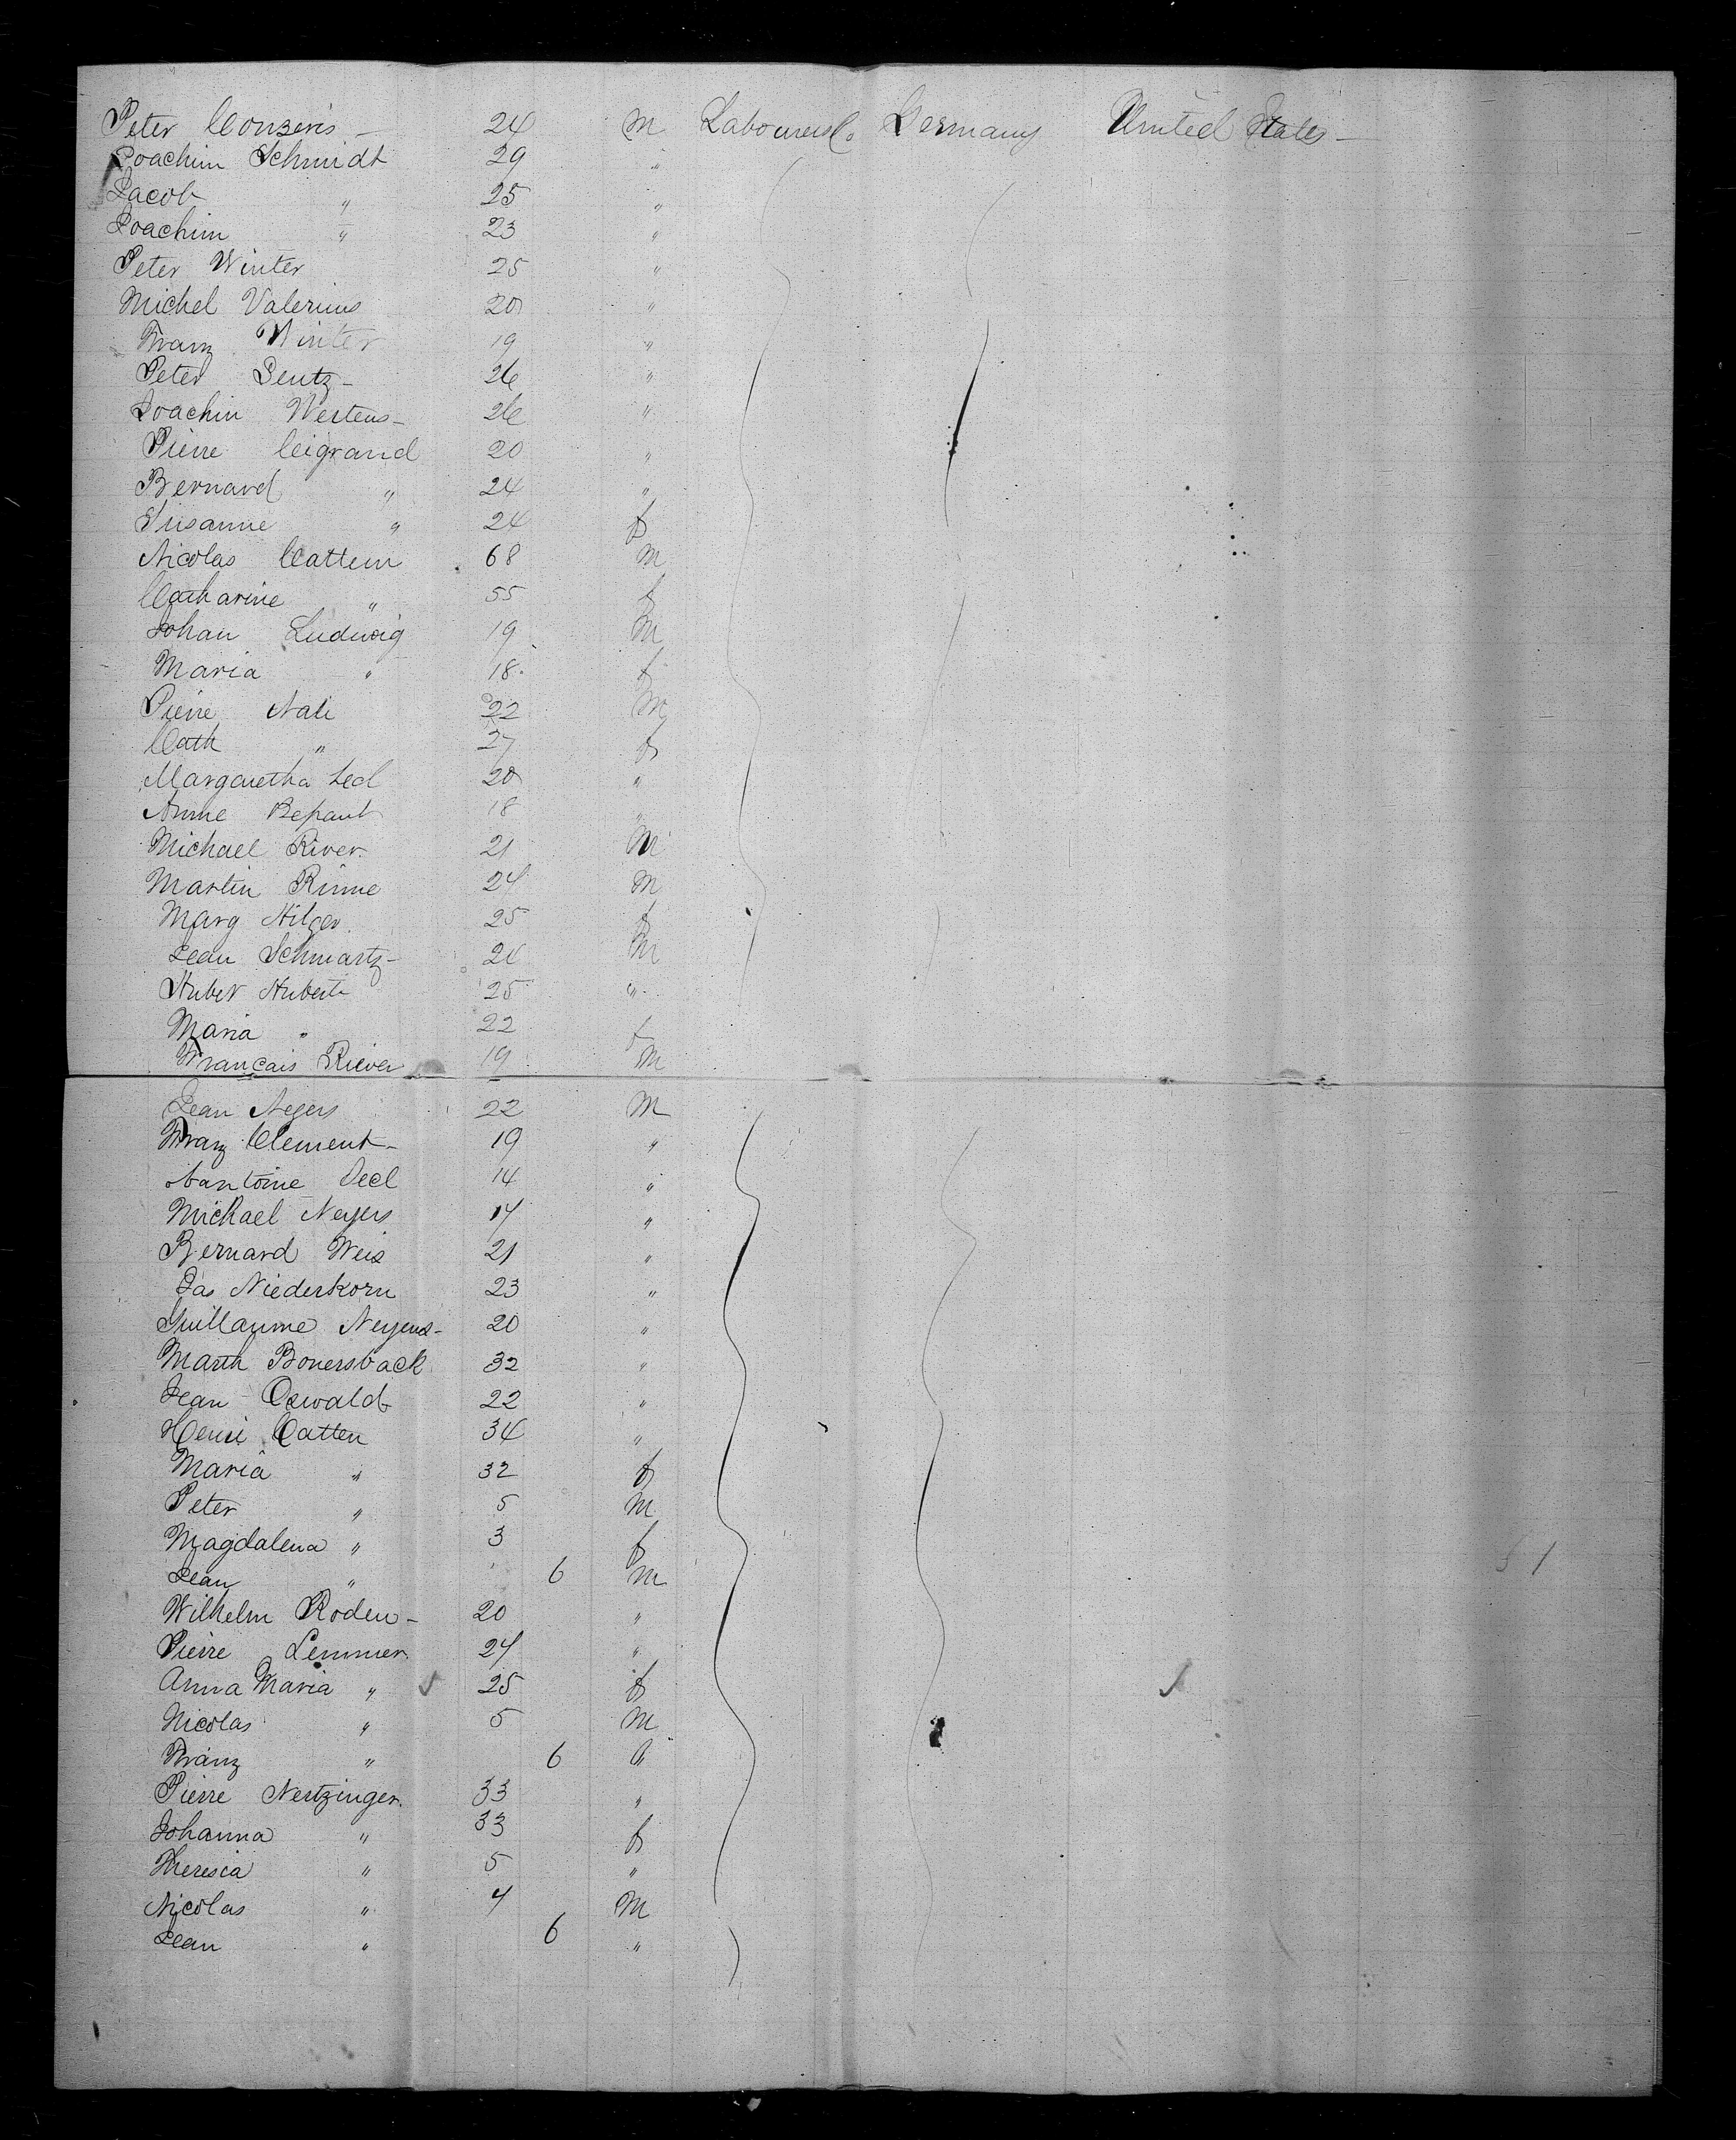 Peter Conzeris — 24 M Labourers &c Germany United States —
Joachim Schmidt 29 "
Jacob " 25 "
Joachim " 23 "
Peter Winter 25 "
Michel Valerius 20 "
Franz Winter 19 "
Peter Dentz — 26 "
Joachin Wertens — 26 "
Pierre Ceigrand 20 "
Bernard " 24 "
Susanne " 24 f
Nicolas Cattem 68 M
Catharine " 55 f
Johan Ludwig 19 M
Maria " 18 f
Pierre Nati 22 M
Cath " 27 f
Margaretha Led 20 "
Anne Repaut 18 "
Michael River 21 M
Martin Rinne 24 M
Marg Hilger 25 f
Jean Schmartz — M
Huber Huberti 25 "
Maria " 22 f
Francais Riever 19 M
Jean Negers 22 M
Franz Clement — 19 "
Antoine Decl 14 "
Michael Neyers "
Bernard Weis 21 "
Jas Niederkorn 23 "
Guillaume Neyens — 20 "
Math Bonersback 32 "
Jean Oswald 22 "
Henri Catten 34 "
Maria " 32 f
Peter " 5 M
Magdalena " 3 f
Jean " 6 M
Wilhelm Roden — 20 "
Pierre Lemmer 24 "
Anna Maria " 25 f
Nicolas " 5 M
Franz " 6 "
Pierre Nertzinger 33 "
Johanna " 33 f
Theresia " 5 "
Nicolas " 4 M
Jean " 6 "